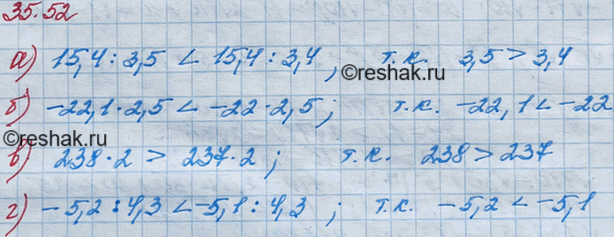 35.52
а) 15,4 : 3,5 < 15,4 : 3,4 , т.к. 3,5 > 3,4
©reshak.ru
б) -22,1 · 2,5 < -22 · 2,5 ; т.к. -22,1 < -22
в) 238 · 2 > 237 · 2 ; т.к. 238 > 237
©reshak.ru
г) -5,2 : 4,3 < -5,1 : 4,3 ; т.к. -5,2 < -5,1